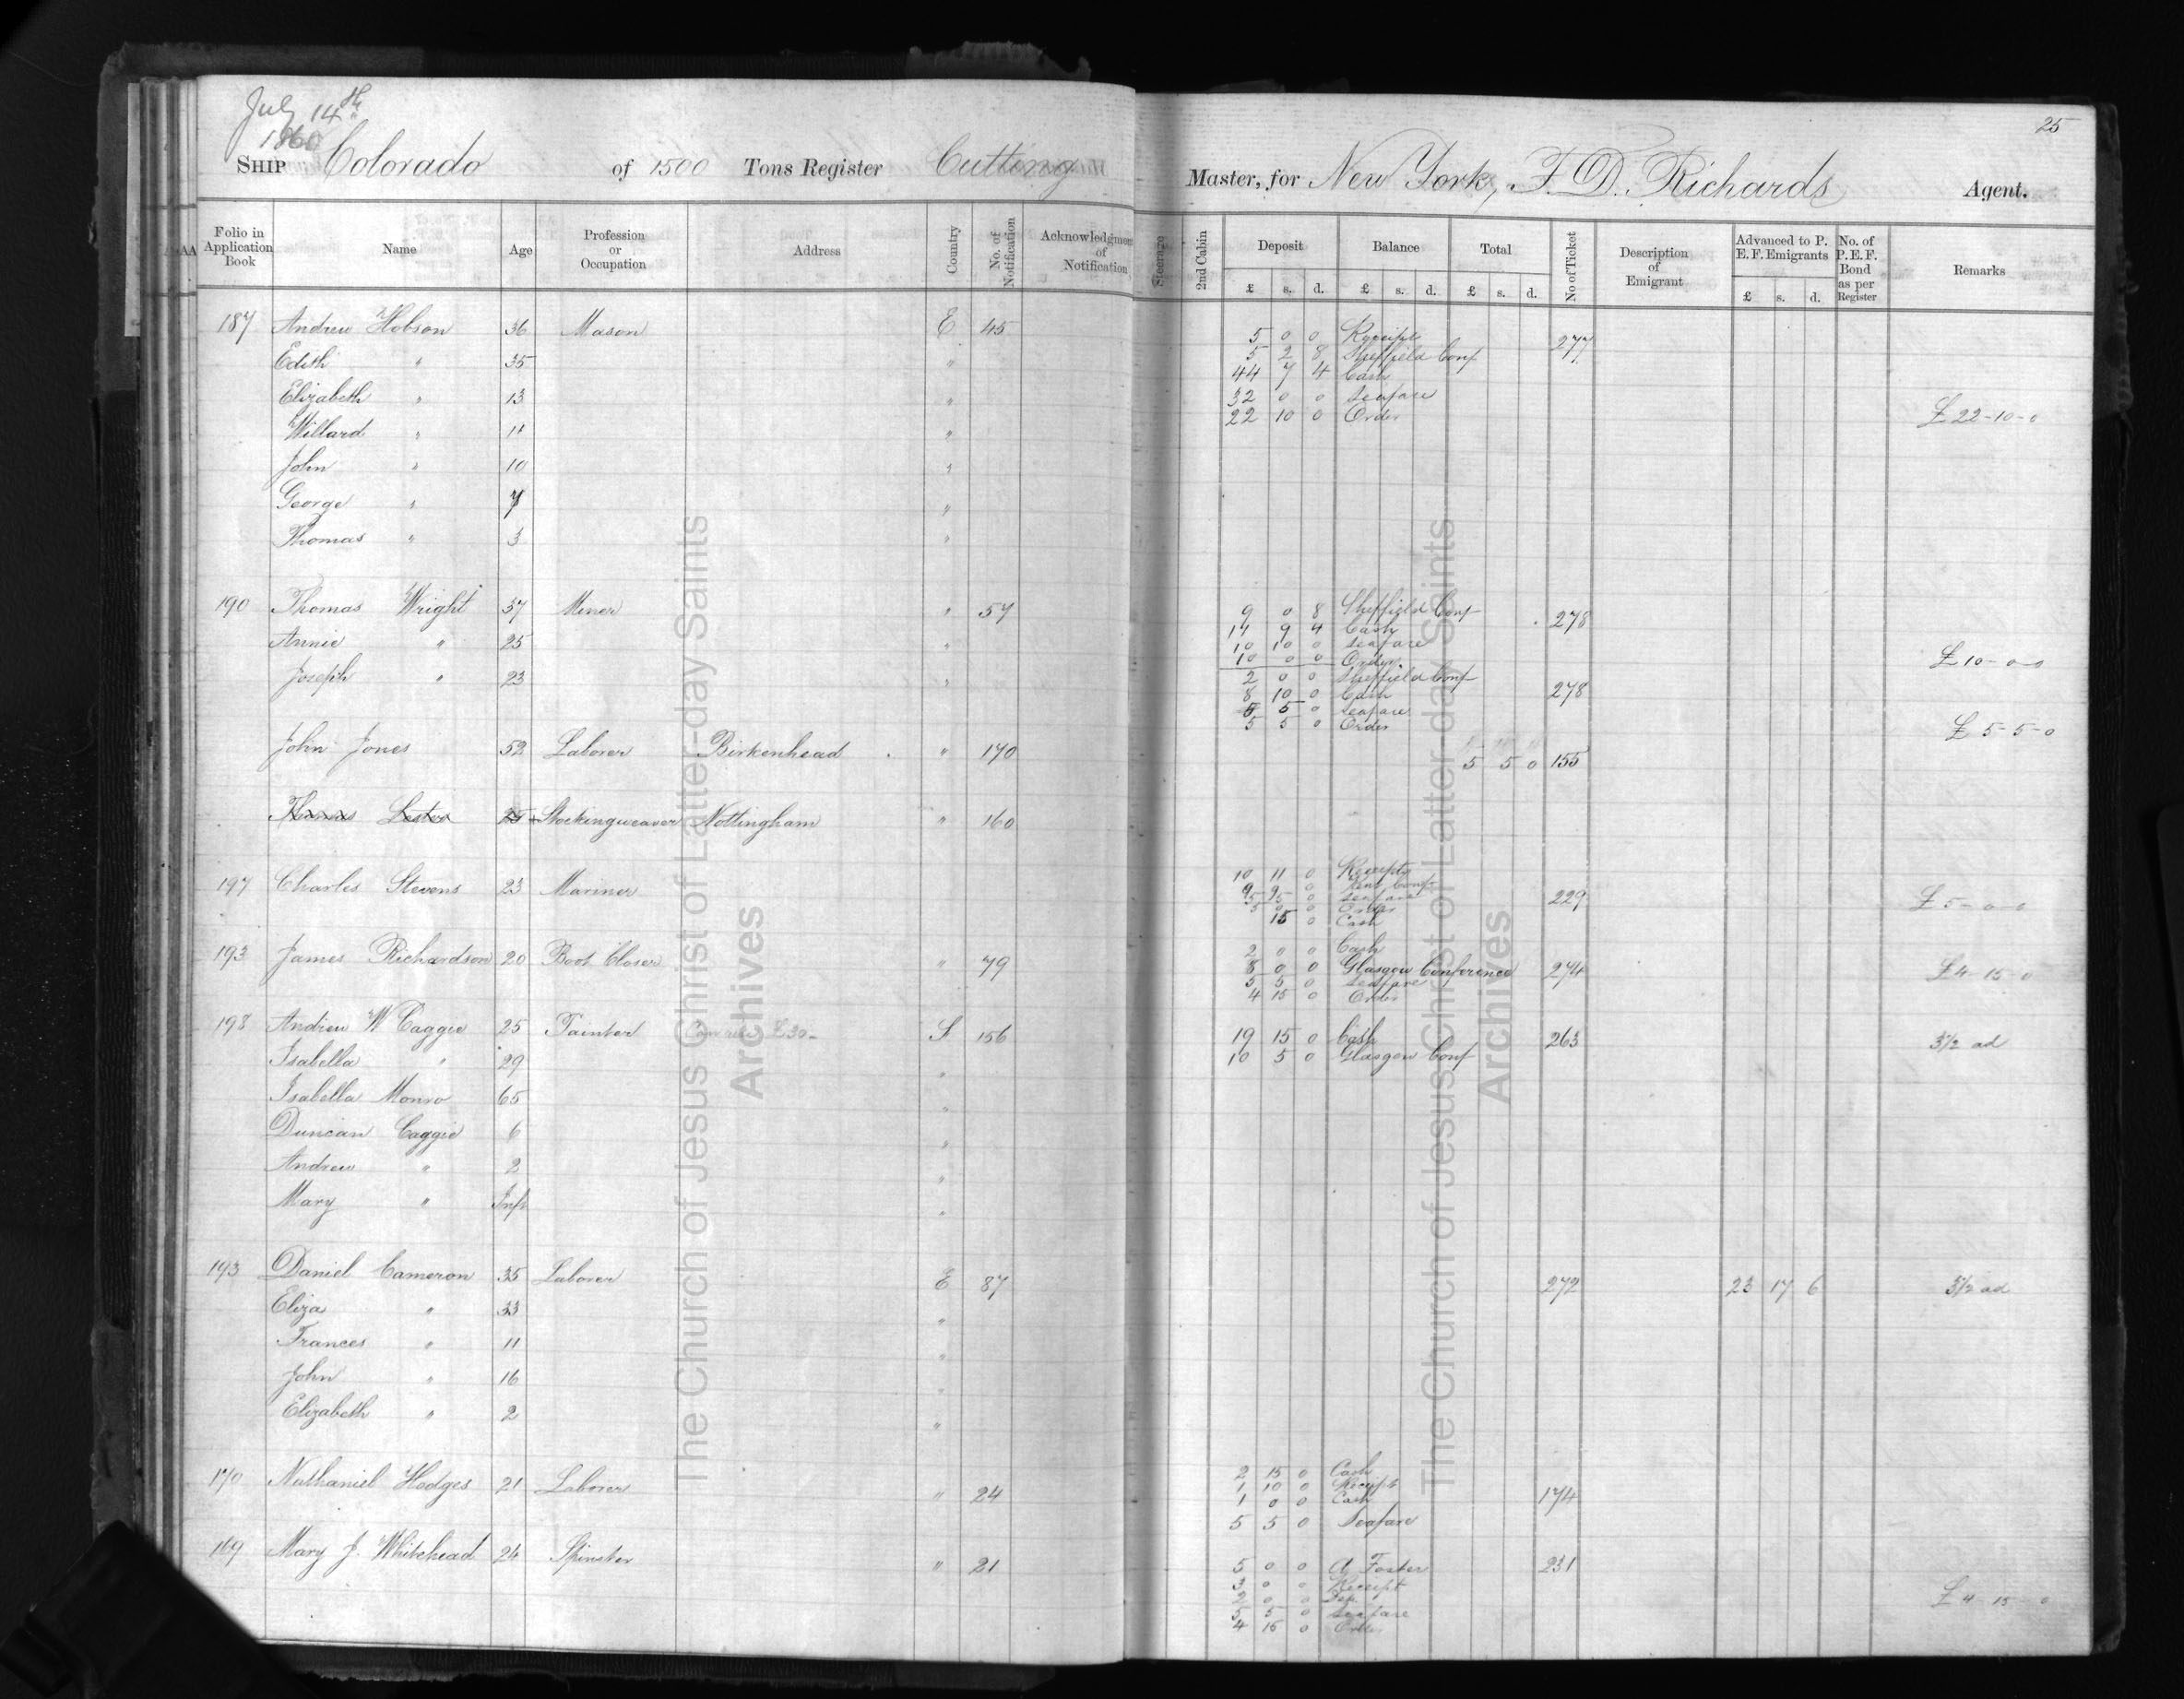 July 14th
1868
25
SHIP Colorado of 1500 Tons Register Cutting Master, for New York, F. D. Richards Agent.
Folio in Application Book Name Age Profession or Occupation Address Country No. of Notification Acknowledgment of Notification Steerage 2nd Cabin Deposit Balance Total No of Ticket Description of Emigrant Advanced to P. E. F. Emigrants No. of P. E. F. Bond as per Register Remarks
£ s. d. £ s. d. £ s. d. £ s. d.
187 Andrew Hobson 36 Mason E 45 5 0 0 Receipt 277
Edith " 35 " 5 2 8 Sheffield Conf
44 7 4 Cash
Elizabeth " 13 " 32 0 0 Seafare
Willard " 11 " 22 10 0 Order £ 22-10-0
John " 10 "
George " 7 "
Thomas " 3 "
190 Thomas Wright 37 Miner " 57 9 0 8 Sheffield Conf 278
14 9 4 Cash
Annie " 25 " 10 10 0 Seafare
10 0 0 Order £ 10-0-0
Joseph " 23 " 2 0 0 Sheffield Conf
8 10 0 Cash 278
5 5 0 Seafare
5 5 0 Order £ 5-5-0
John Jones 52 Laborer Birkenhead " 170 5 5 0 155
Thomas Lester 25 Stockingweaver Nottingham " 160
197 Charles Stevens 23 Mariner 10 11 0 Receipts
Kent Conf
5 5 0 Seafare 229
5 0 0 Order £ 5-0-0
15 0 Cash
193 James Richardson 20 Boot Closer " 79 2 0 0 Cash
8 0 0 Glasgow Conference 274
5 5 0 Seafare
4 15 0 Order £4-15-0
198 Andrew W Caggie 25 Painter £30- S 156 19 15 0 Cash 263 3 1/2 ad
Isabella " 29 " 10 5 0 Glasgow Conf
Isabella Monro 65 "
Duncan Caggie 6 "
Andrew " 2 "
Mary " Inft "
193 Daniel Cameron 35 Laborer E 87 272 23 17 6 3 1/2 ad
Eliza " 33 "
Frances " 11 "
John " 16 "
Elizabeth " 2 "
170 Nathaniel Hodges 21 Laborer " 24 2 15 0 Cash
1 10 0 Receipt 174
1 0 0 Cash
5 5 0 Seafare
169 Mary J. Whitehead 24 Spinster " 21 5 0 0 Foster 231
3 0 0 Receipt
2 0 0
5 5 0 Seafare
4 15 0 Order £ 4-15-0
The Church of Jesus Christ of Latter-day Saints
Archives
The Church of Jesus Christ of Latter-day Saints
Archives